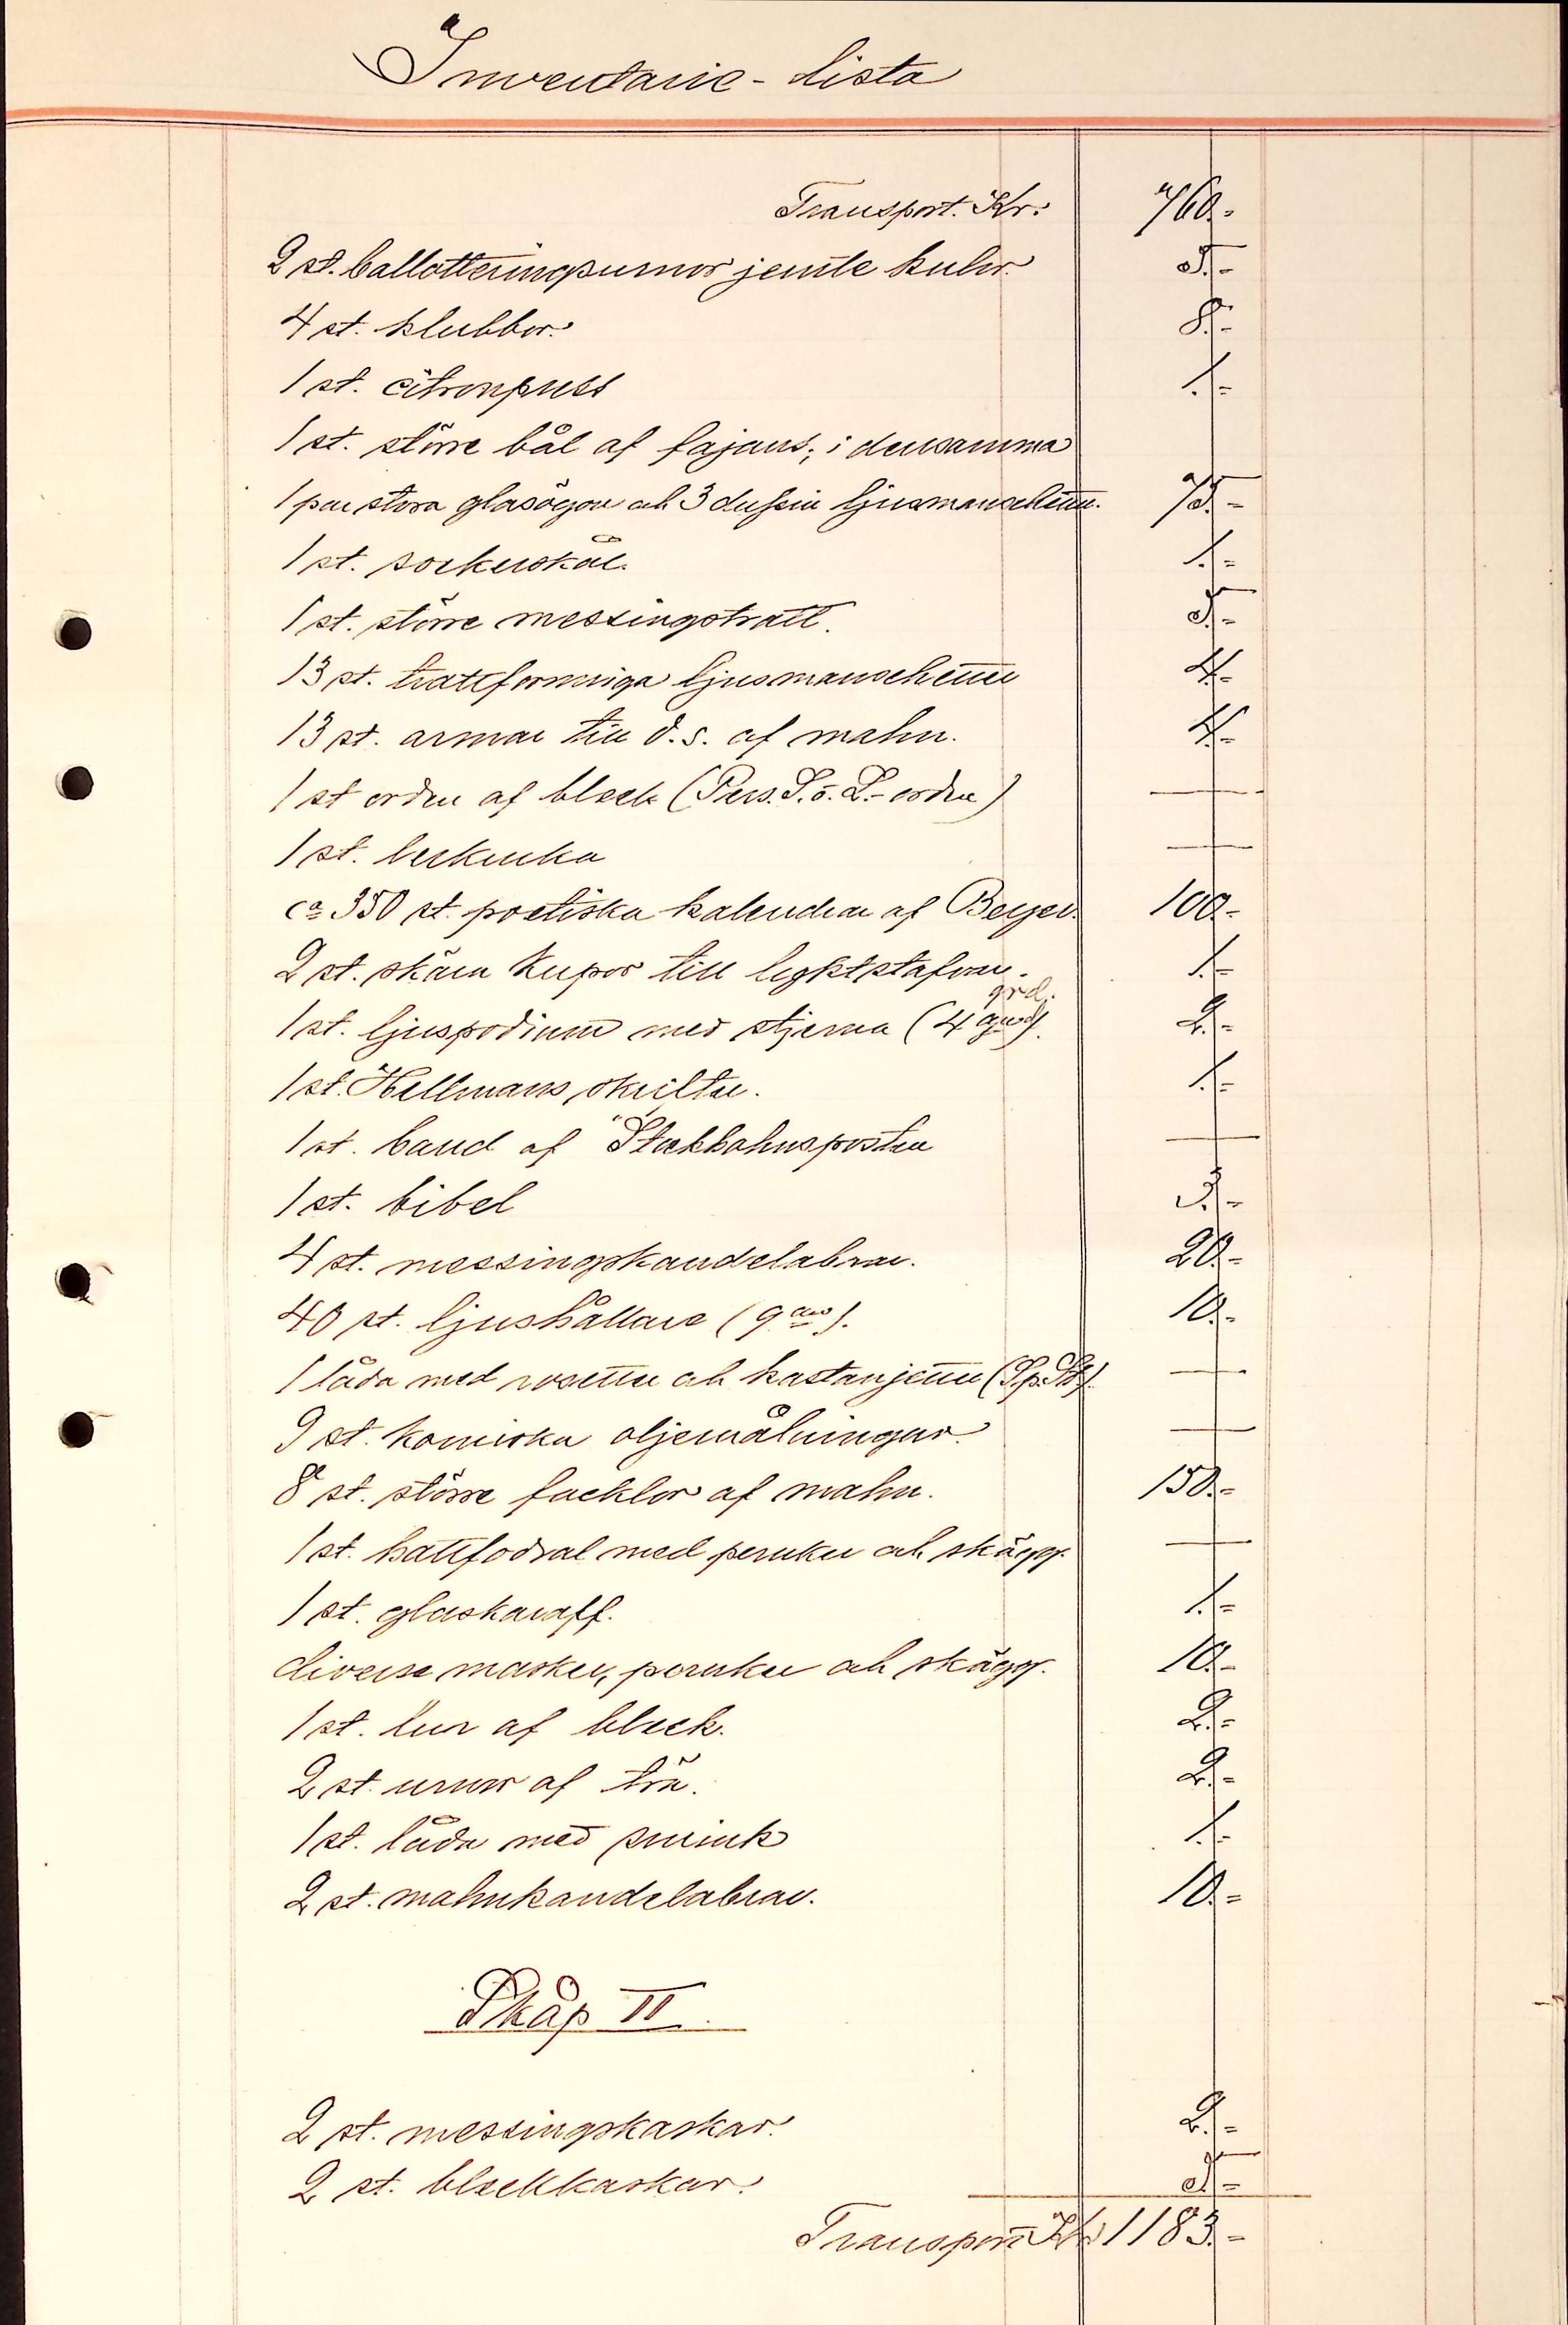 Inventarie-Lista
Transport. Kr. 760.-
2 st. ballotteringsurnor jemte kulor. 5.-
4 st. klubbor. 8.-
1 st. citronpress 1.-
1 st. större bål af fajans; i densamma
1 par stora glasögon och 3 dussin ljusmanschetter. 75.-
1 st. sockerskål. 1.-
1 st. större messingstratt. 5.-
13 st. trattformiga ljusmanschetter 4.-
13 st. armar till d.s. af malm. 4.-
1 st orden af bleck (Pers. S. o. L.-orden) —
1 st. —
ca 350 st. poetiska kalendrar af Beyer. 100.-
2 st. skära kupor till lyktstafvar. 1.-
1 st. ljuspodium med stjerna (4 grd.). 2.-
1 st. Hellmans skylten. 1.-
1 st. band af "Stockholmsposten —
1 st. bibel 3.-
4 st. messingskandelabrar. 20.-
40 st. ljushållare (9 ). 10.-
1 låda med rosetter och kastanjetter (Sp. St). —
9 st. komiska oljemålningar. —
8 st. större facklor af malm. 150.-
1 st. hattfodral med peruker och skägg. —
1 st. glaskaraff. 1.-
diverse masker, peruker och skägg. 10.-
1 st. lur af bleck. 2.-
2 st. urnor af trä. 2.-
1 st. låda med smink 1.-
2 st. malmkandelabrar. 10.-
Skåp II.
2 st. messingskaskar. 2.-
2 st. bleckkaskar. 5.-
Transport Kr 1183.-